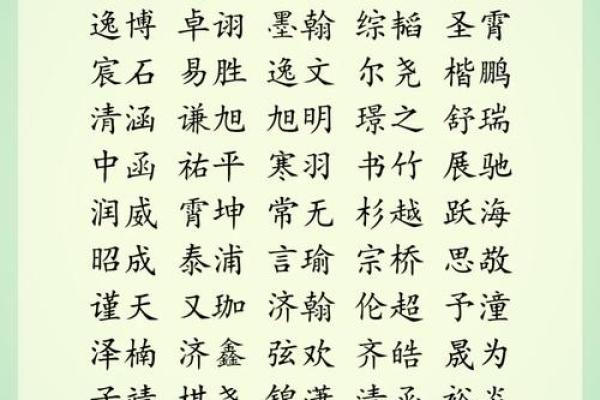 逸博 卓诩 墨翰 综韬 圣霄
宸石 易胜 逸文 尔尧 楷鹏
清涵 谦旭 旭明 璟之 舒瑞
中函 祐平 寒羽 书竹 展驰
润威 霄坤 常无 杉越 跃海
昭成 泰浦 言瑜 宗桥 思敬
谨天 又珈 济翰 伦超 予潼
泽楠 济鑫 弦欢 齐皓 晟为